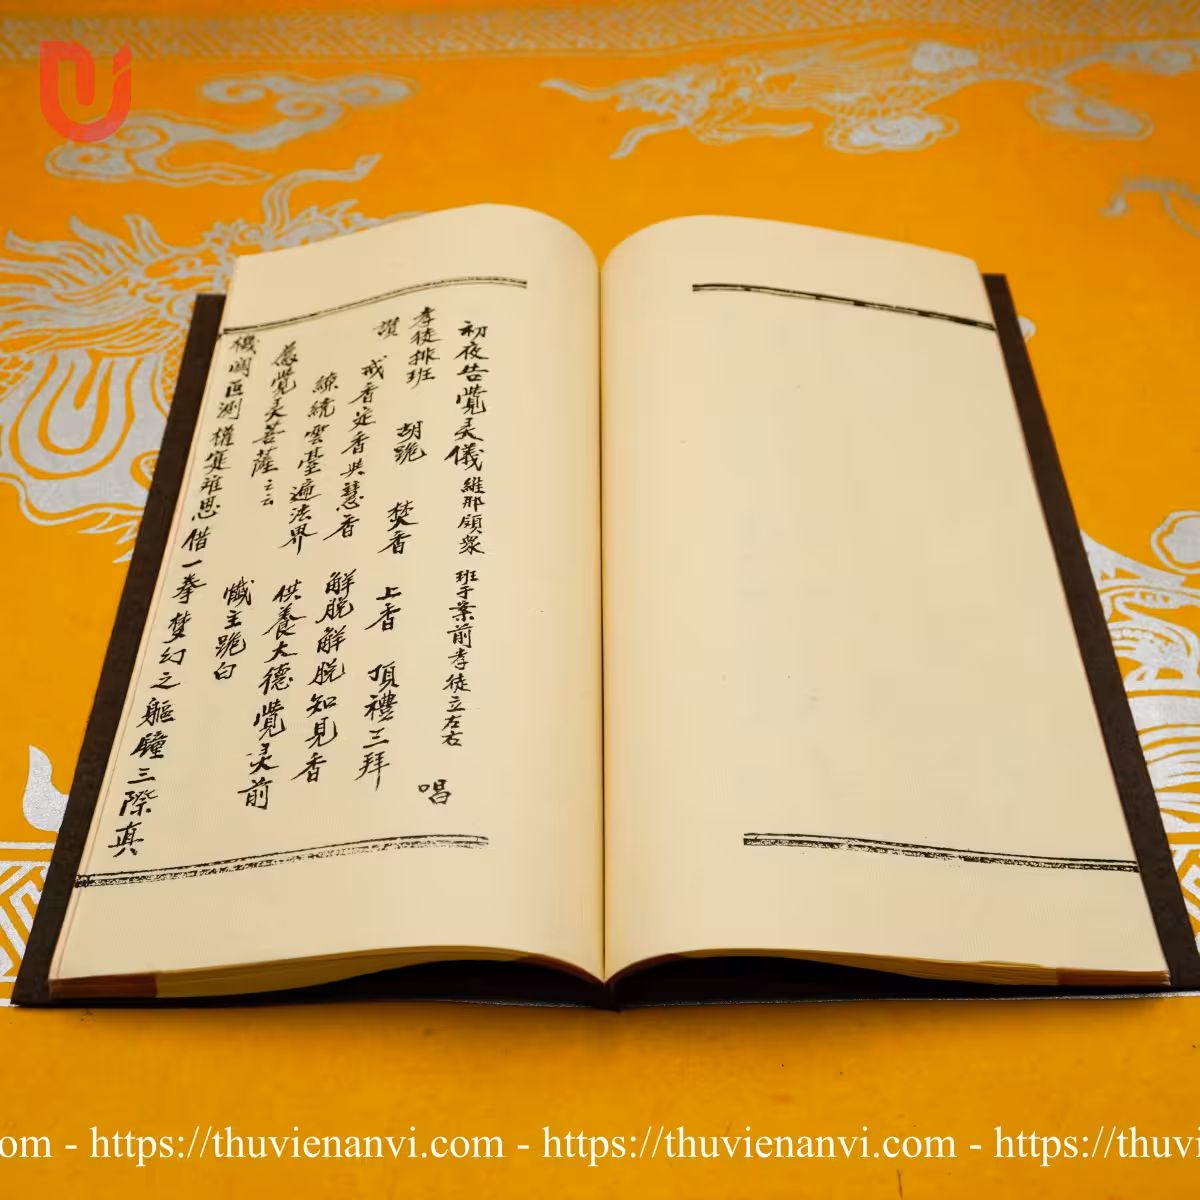 初夜告覺灵儀 維那領衆 班于案前孝徒立左右 唱
孝徒排班 胡跪 焚香 上香 頂禮三拜
讚 戒香定香共慧香 解脱解脱知見香
繚繞雲臺遍法界 供養大德覺灵前
為覺灵菩薩 云 懺主跪白
機関叵測權寔难思借一拳梦幻之軀 三際真
om - https://thuvienanvi.com - https://thuvienanvi.com - https://thuvi